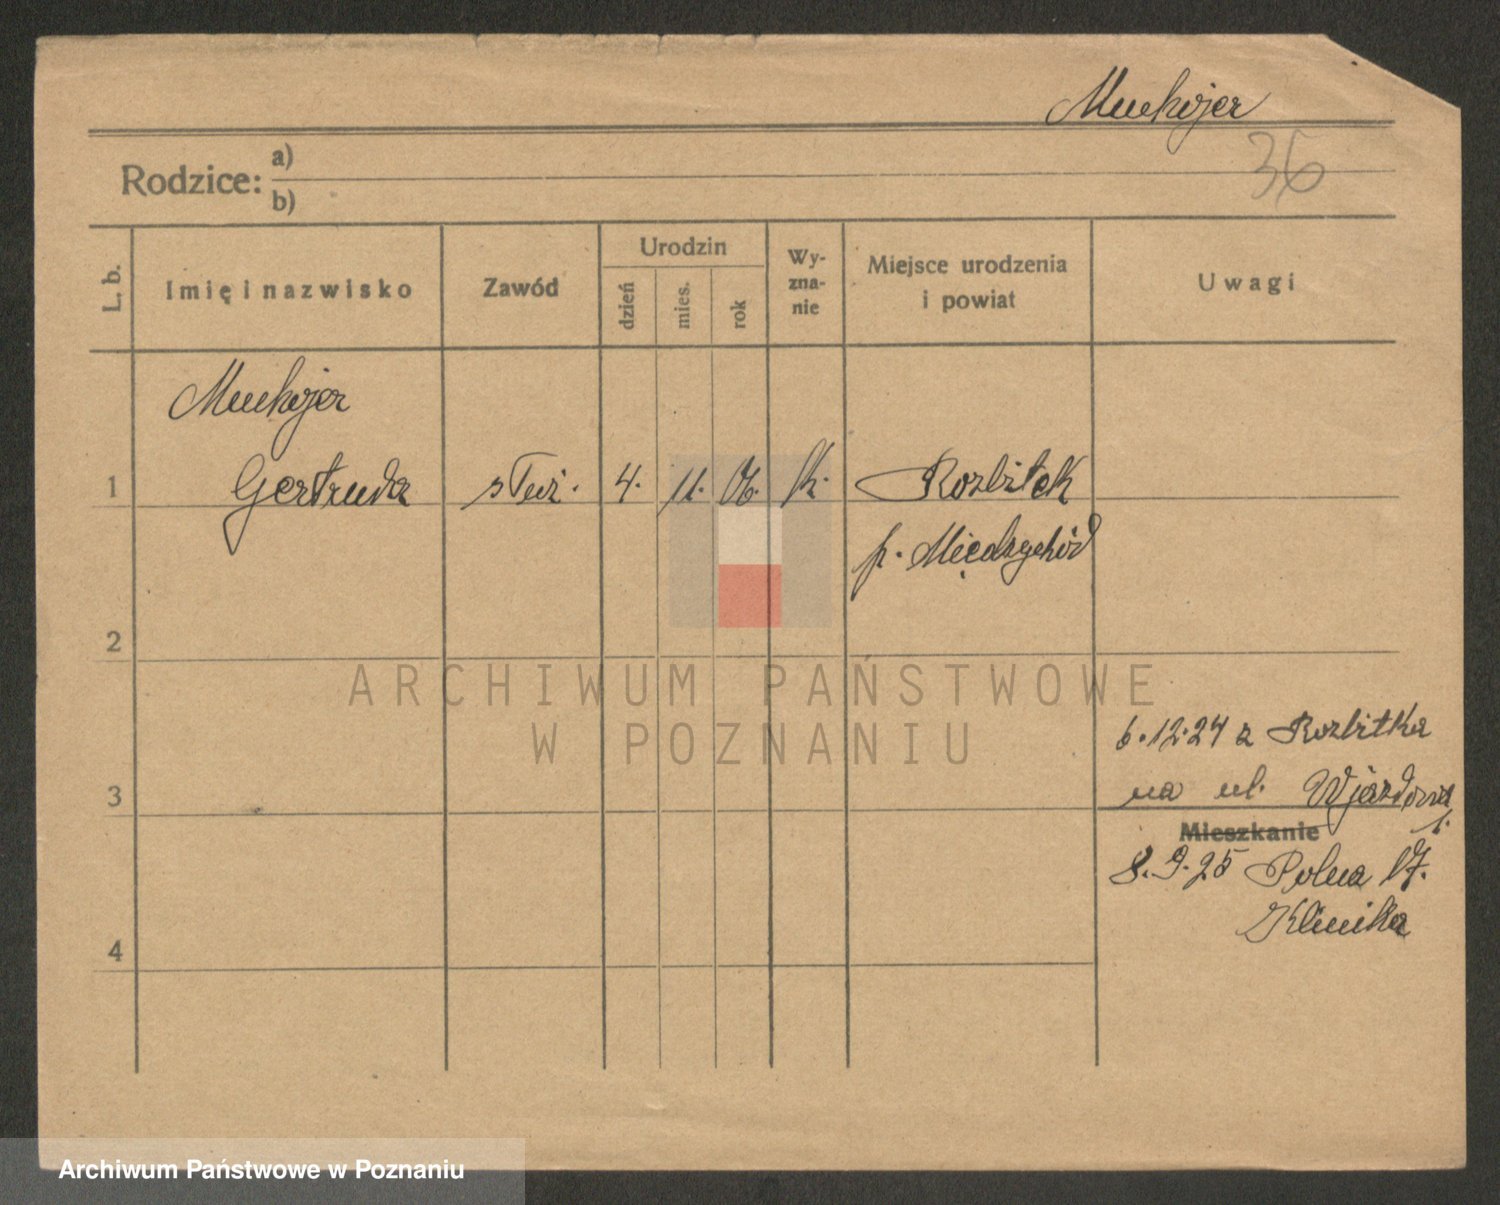 Muchajer
36
Rodzice: a)
b)
L. b.
Imię i nazwisko
Zawód
Urodzin
dzień
mies.
rok
Wy-
zna-
nie
Miejsce urodzenia
i powiat
Uwagi
Muchajer
1 Gertruda służ. 4. 11. 06. k. Rozbitek
p. Międzychód
2
ARCHIWUM PAŃSTWOWE
W POZNANIU
6.12.24 z Rozbitka
3 na ul. Wjazdowa
1.
Mieszkanie
8.9.25 Polna 17.
Klinika
4
Archiwum Państwowe w Poznaniu